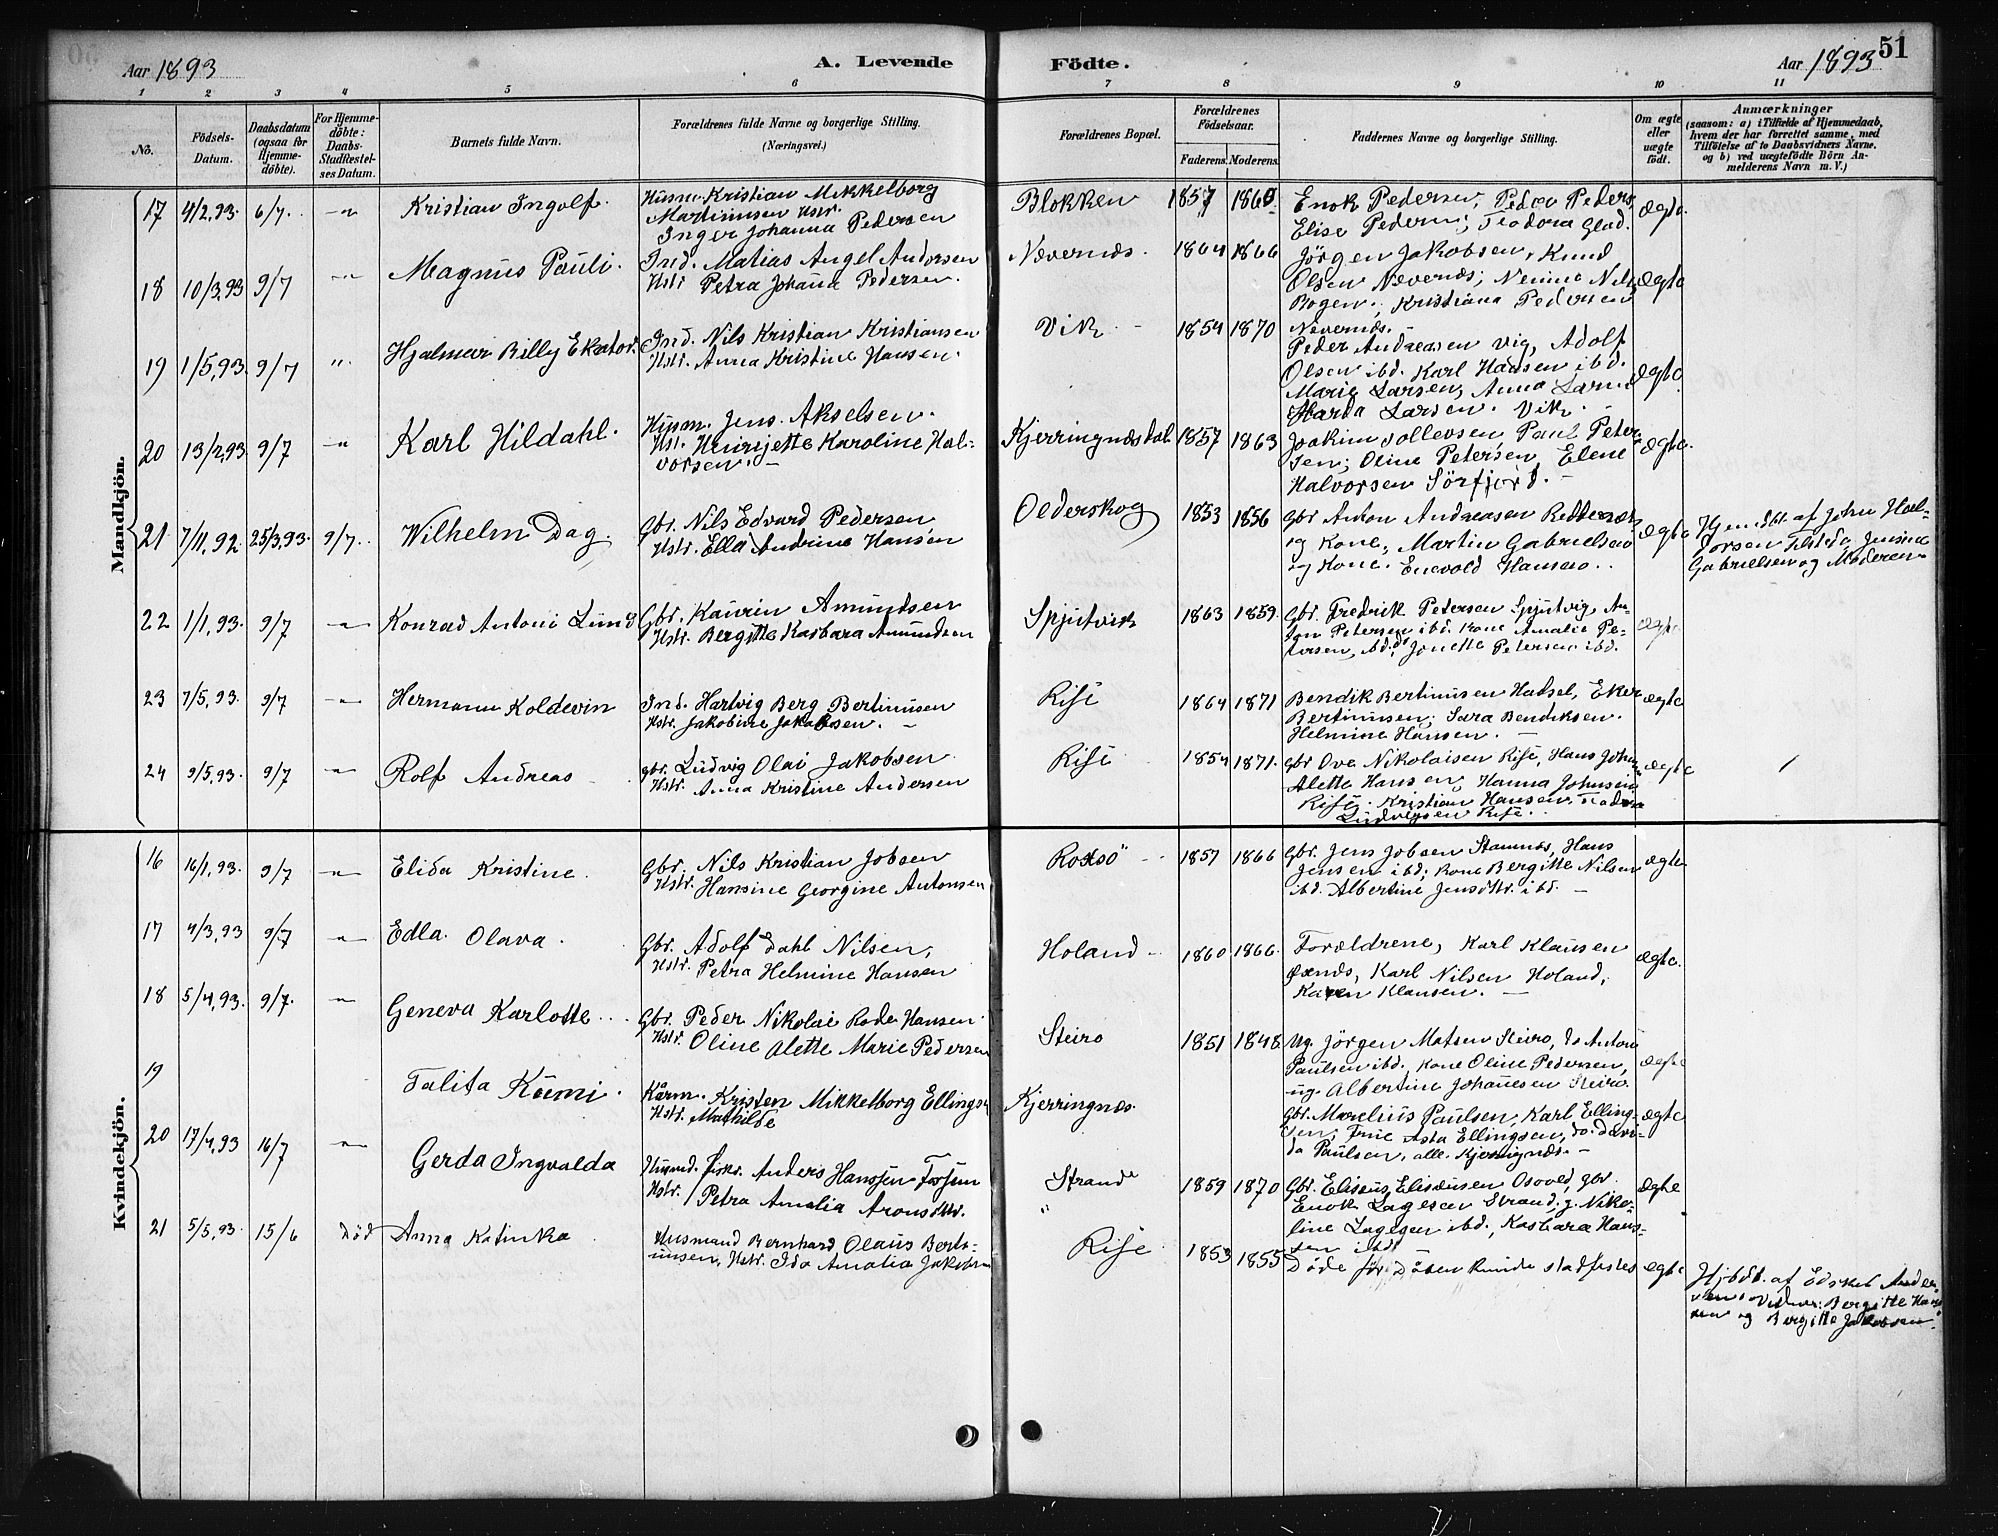 Aar 1893
A. Levende
Födte.
Aar 1893
51
1 2 3 4 5 6 7 8 9 10 11
No.
Födsels-Datum.
Daabsdatum (ogsaa for Hjemme-döbte).
For Hjemme-döbte: Daabs-Stadfæstelses Datum.
Barnets fulde Navn.
Forældrenes fulde Navne og borgerlige Stilling.
(Næringsvei.)
Forældrenes Bopæl.
Forældrenes Födselsaar.
Faderens. Moderens.
Faddernes Navne og borgerlige Stilling.
Om ægte eller uægte födt.
Anmærkninger
(saasom: a) i Tilfælde af Hjemmedaab,
hvem der har forrettet samme, med
Tilföielse af to Daabsvidners Navne.
og b) ved uægtefödte Börn An-
melderens Navn m. V.)
Mandkjön.
17 4/2,93. 6/7. -"- Kristian Ingolf.
Husm. Kristian Mikkelborg
Martinusen Hstr.
Inger Johanna Pedersen
Blokken 1857 1860.
Enok Pedersen, Peder Peders,
Elise Pedersen; Teodora Glad.
ægte.
18 10/3,93 9/7 -"- Magnus Pauli.
Ind. Matias Angel Andorsen
Hstr Petra Johana Pedersen.
Nævernæs. 1864 1866
Jörgen Jakobsen, Knud
Olsen Nevernæs; Nenine Nils
Bogen; Kristiana Pedersen
Nevernæs.
ægte
19 1/5,93. 9/7 " Hjalmar Billy Ekator.
Ind. Nils Kristian Kristiansen
Hstr. Anna Kristine Hansen.
Vik 1854 1870
Peder Andreasen Vig, Adolf
Olsen ibd. Karl Hansen ibd.
Marie Larsen, Anna Larsen
Marta Larsen. Vik.
ægte.
20 13/2,93 9/7 " Karl Hildahl.
Husm. Jens Akselsen.
Hst. Henrijette Karoline Hal-
vorsen. -
Kjerringnæsdal. 1857 1863
Joakim Tollevsen, Paul Peter
sen; Oline Petersen, Elene
Halvorsen Sörfjord. -
ægte.
21 7/11,92. 25/3,93. 9/7. Wilhelm Dag.
Gbr. Nils Edvard Pedersen
Hstr. Ella Andrine Hansen
Olderskog 1853 1856
Gbr Anton Andreasen
og Kone, Martin Gabrielsen
og Kone. Enevold Hansen.
ægte
Hjem.dbt. af John Hal-
vorsen Jensine
Gabrielsen og Moderen
22 1/1,93. 9/7 -"- Konrad Antoni Lund
Gbr. Kaurin Amundsen
Hstr. Bergitte Karbara Amundsen
Spjutvik 1863 1859.
Gbr. Fredrik Petersen Spjutvig, An-
ton Petersen ibd. Kone Amalie Pe-
tersen, ibd. Jonette Petersen ibd.
ægte
23 7/5,93. 9/7 -"- Hermann Koldevin
Ind. Hartvig Berg Bertinusen
Hstr. Jakobine Jakobsen. -
Rise 1864 1871
Bendik Bertinusen Hadsel, Eker
Bertinusen; Sara Bendiksen.
Helmine Hansen. -
ægte
24 9/5,93. 9/7 -"- Rolf Andreas
gbr. Ludvig Olai Jakobsen
Hstr. Anna Kristine Andersen
Rise 1854 1871.
Gbr Ove Nikolaisen Rise, Hans Johnsen
Alette Hansen, Hanna Johnsen
Rise. Kristian Hansen, Teodora
Ludvigsen Rise.
ægte
Kvindekjön.
16 16/1,93. 9/7 -"- Elida Kristine.
Gbr. Nils Kristian Jobsen
Hstr. Hansine Georgine Antonsen
1857 1866
Gbr. Jens Jobsen Stamnes, Hans
Jensen ibd; Kone Bergitte Nilsen
ibd. Albertine Jensdtr. ibd. -
ægte
17 4/3,93 9/7 -"- Edla Olava.
Gbr. Adolf Dahl Nilsen,
Hstr. Petra Helmine Hansen
Holand - 1860 1866.
Forældrene, Karl Klausen
Karl Nilsen Holand,
Karen Klausen. -
ægte.
18 5/4,93. 9/7. -"- Geneva Karlotte
Gbr. Peder Nikolai Rode Hansen
Hstr. Oline Alette Marie Pedersen
Steiro 1851 1848
Ug. Jörgen Matsen Steiro, do Anton
Paulsen ibd. Kone Oline Pedersen,
ug. Albertine Johansen Steiro.
ægte
19 Talita Kumi.
Mikkelborg Ellingsen
Hstr. Mathilde
Kjerringnæs.
Gbr. Marelius Paulsen, Karl Elling-
sen, Frue Asta Ellingsen, do. Davi-
da Paulsen, alle Kjerringnæs. -
ægte
20 17/4,93 16/7 -"- Gerda Ingvalda
Husmd. Fisk. Anders Hanssen
Hstr. Petra Amalia Aronsdtr.
Strand 1859 1870
Gbr. Eliseus Elisæusen Osvold, gbr.
Enok Lagesen Strand; g. Niko-
line Lagesen ibd., Karbara Han-
sen ibd.
ægte
21 5/5,93. 15/6 Död Anna Katinka
Husmand Bernhard Olaus Berti-
nusen, Hstr. Ida Amalia Jakobsen
Rise 1853 1855
Döde för Dåben kunde stadfæstes
ægte
Hjdbt. af Edsket Ander-
sen. Vidner: Bergitte Han-
sen og Bergitte Jakobsen.